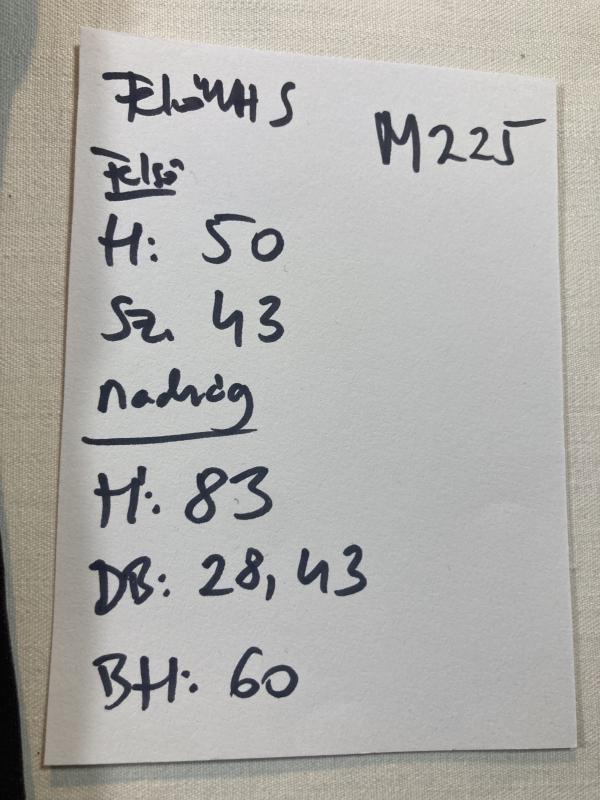 Felnőtt S
M225
Felső
H: 50
Sz. 43
nadrág
H: 83
DB: 28, 43
BH: 60